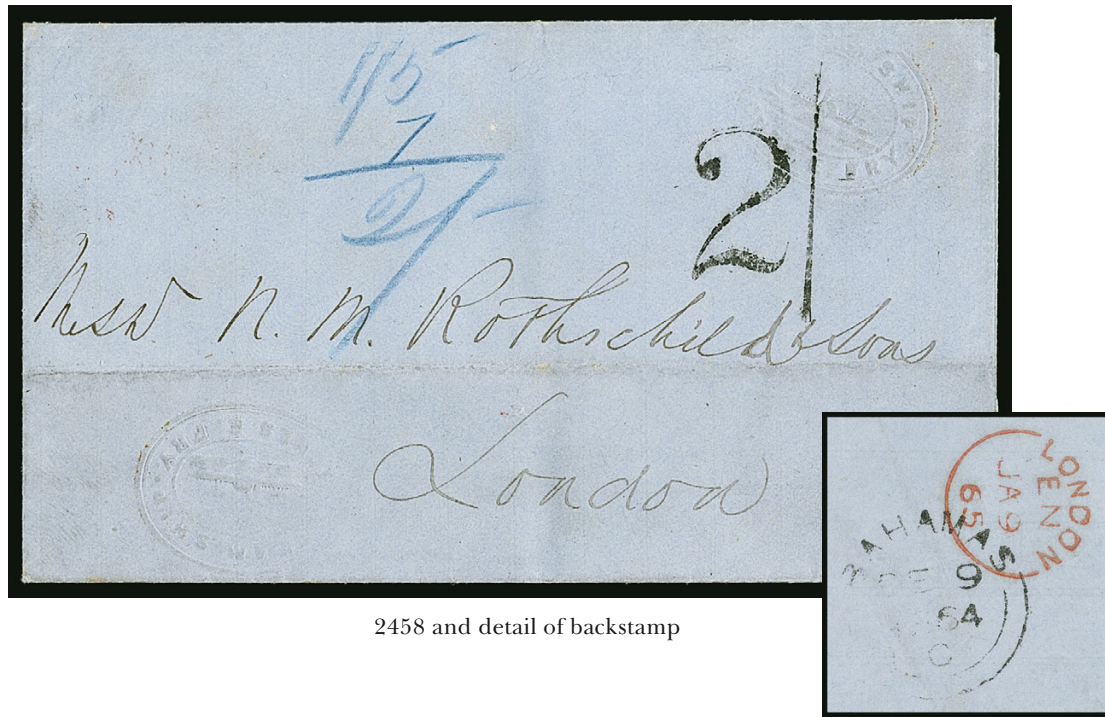 1/5
7
2/-
2/
SWIF
TRY
Messrs N. M. Rothschild & Sons
London
LONDON
EN
JA 9
65
BAHAMAS
DE 9
64
C
2458 and detail of backstamp